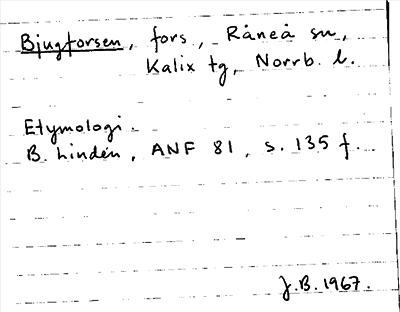 Bjugforsen, fors, Råneå sn,
Kalix tg, Norrb. l.
Etymologi.
B. Lindén, ANF 81, s. 135 f.
J.B. 1967.